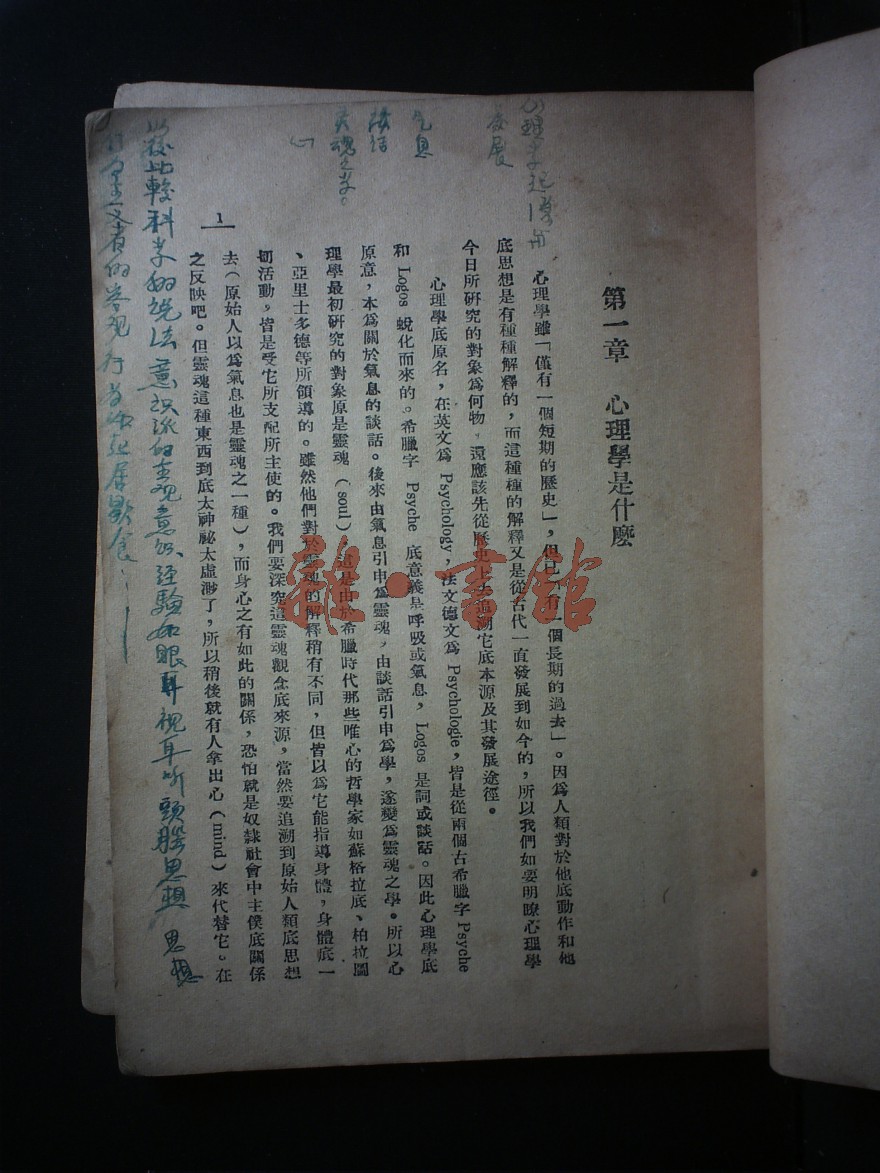 心理学起源与
发展
气息
談話
灵魂之学。
心
第一章　心理學是什麽
心理學雖「僅有一個短期的歷史」，但已「有一個長期的過去」。因爲人類對於他底動作和他
底思想是有種種解釋的，而這種種的解釋又是從古代一直發展到如今的，所以我們如要明瞭心理學
今日所研究的對象爲何物，還應該先從歷史上去追溯它底本源及其發展途徑。
心理學底原名，在英文爲 Psychology，法文德文爲 Psychologie，皆是從兩個古希臘字 Psyche
和 Logos 蛻化而來的。希臘字 Psyche 底意義是呼吸或氣息，Logos 是詞或談話。因此心理學底
原意，本爲關於氣息的談話。後來由氣息引申爲靈魂，由談話引申爲學，遂變爲靈魂之學。所以心
理學最初研究的對象原是靈魂（soul）這是由於希臘時代那些唯心的哲學家如蘇格拉底、柏拉圖
、亞里士多德等所領導的。雖然他們對於靈魂的解釋稍有不同，但皆以爲它能指導身體，身體底一
切活動，皆是受它所支配所主使的。我們要深究這靈魂觀念底來源，當然要追溯到原始人類底思想
去（原始人以爲氣息也是靈魂之一種），而身心之有如此的關係，恐怕就是奴隸社會中主僕底關係
之反映吧。但靈魂這種東西到底太神祕太虛渺了，所以稍後就有人拿出心（mind）來代替它。在
1
比較科学的說法意识派的主观意识、经驗如眼耳視耳听頭腦思想 思想
主义者的客观行为如起居飲食
雜·書館